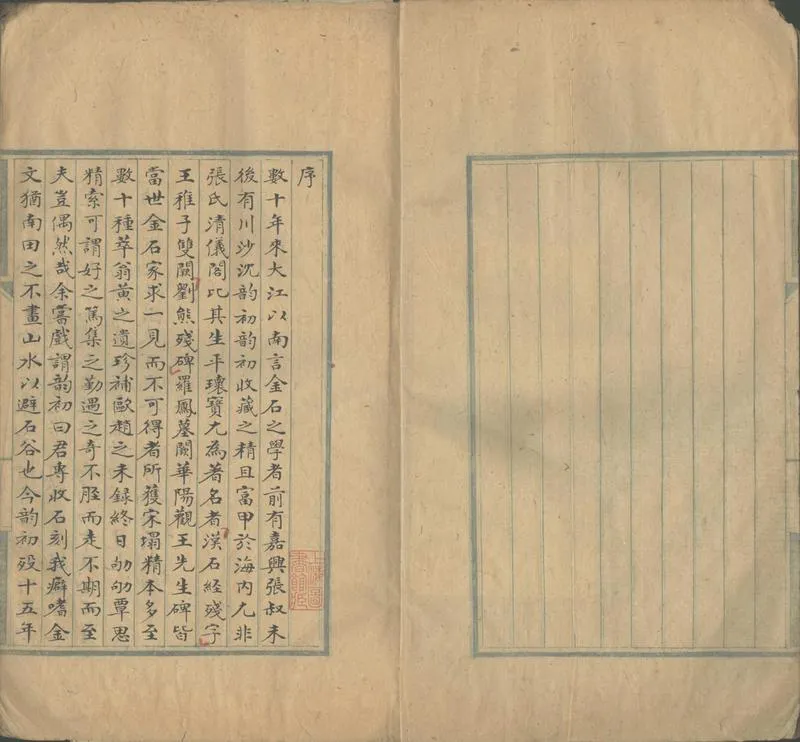 序
數十年來大江以南言金石之學者前有嘉興張叔未
後有川沙沈韵初韵初收藏之精且富甲於海內尤非
張氏清儀閣比其生平瓌寶尤為著名者漢石經殘字
王稚子雙闕劉熊殘碑羅鳳墓闕華陽觀王先生碑皆
當世金石家求一見而不可得者所獲宋塌精本多至
數十種萃翁黃之遺珍補歐趙之未録終日劬劬覃思
精索可謂好之篤集之勤遇之奇不脛而走不期而至
夫豈偶然哉余嘗戲謂韵初曰君專收石刻我癖嗜金
文猶南田之不畫山水以避石谷也今韵初歿十五年